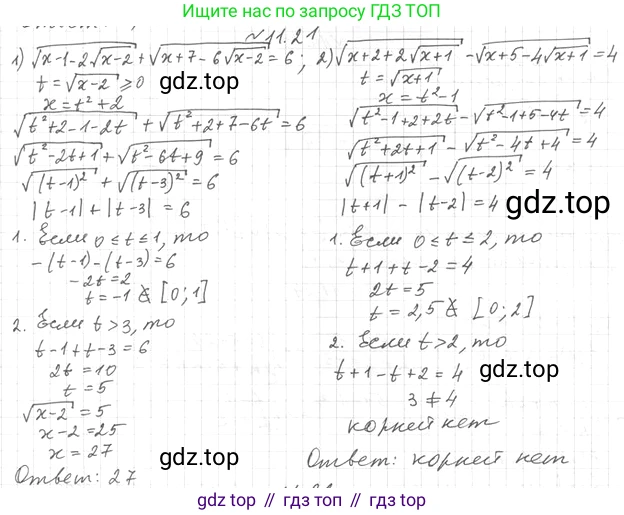 Ищите нас по запросу ГДЗ ТОП
№11.21
1) √(x-1-2√(x-2)) + √(x+7-6√(x-2)) = 6;
t = √(x-2) ≥ 0
gdz.top
x = t² + 2
√(t²+2-1-2t) + √(t²+2+7-6t) = 6
√(t²-2t+1) + √(t²-6t+9) = 6
√((t-1)²) + √((t-3)²) = 6
|t-1| + |t-3| = 6
1. Если 0 ≤ t ≤ 1, то
-(t-1)-(t-3) = 6
-2t = 2
t = -1 ∉ [0; 1]
2. Если t > 3, то
t-1+t-3 = 6
2t = 10
t = 5
√(x-2) = 5
x-2 = 25
x = 27
gdz.top
Ответ: 27
2) √(x+2+2√(x+1)) - √(x+5-4√(x+1)) = 4
t = √(x+1)
x = t²-1
√(t²-1+2+2t) - √(t²-1+5-4t) = 4
√(t²+2t+1) - √(t²-4t+4) = 4
√((t+1)²) - √((t-2)²) = 4
|t+1| - |t-2| = 4
gdz.top
1. Если 0 ≤ t ≤ 2, то
t+1+t-2 = 4
2t = 5
t = 2,5 ∉ [0; 2]
2. Если t > 2, то
t+1-t+2 = 4
gdz.top
3 ≠ 4
корней нет
Ответ: корней нет
gdz.top || гдз.топ || гдз топ